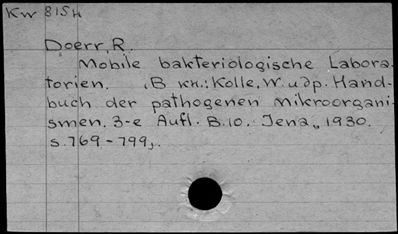 Kw 815н
Doerr, R.
Mobile bakteriologische Labora-
torien. (В кн.: Kolle, W. и др. Hand-
buch der pathogenen Mikroorgani-
smen. 3-e Aufl. B. 10. Jena, 1930.
s. 769-799).